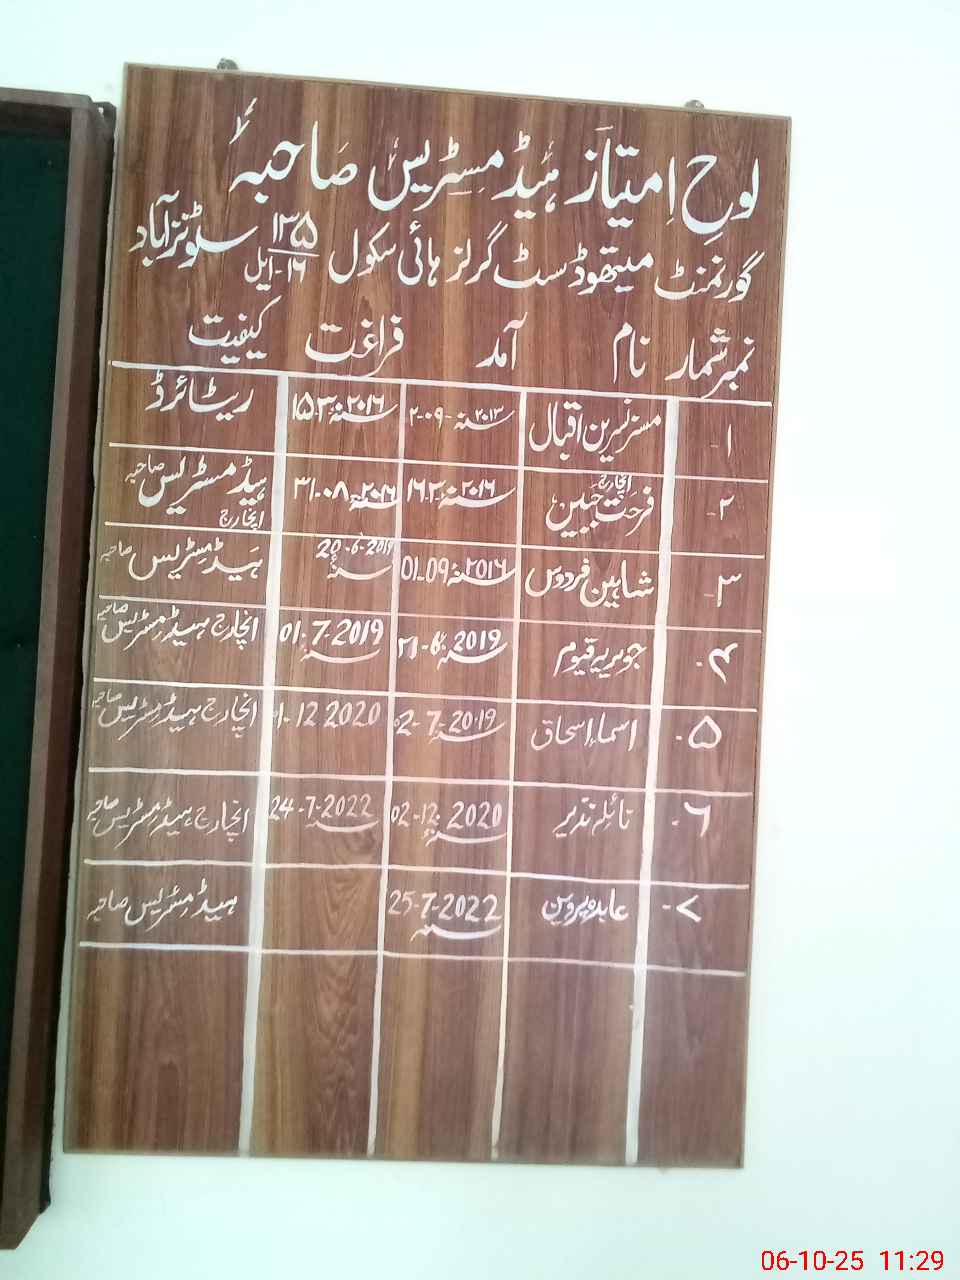 لوحِ اِمتیاز ہیڈ مسٹریس صاحبہ
گورنمنٹ میتھوڈسٹ گرلز ہائی سکول ۱۳۵/۱۶-ایل سٹونزآباد
نمبر شمار نام آمد فراغت کیفیت
۱- مسز نسرین اقبال ۲-۰۹-۲۰۱۳ ریٹائرڈ
۲- فرحت جبیں انچارج ۳۱-۰۸-۲۰۱۶ ہیڈ مسٹریس صاحبہ انچارج
۳- شاہین فردوس 01-09-۲۰۱۶ 20-6-2019 ہیڈ مسٹریس صاحبہ
۴- جویریہ قیوم 21-6-2019 01-7-2019 انچارج ہیڈ مسٹریس صاحبہ
۵- اسماء اسحاق 02-7-2019 1-12 2020 انچارج ہیڈ مسٹریس صاحبہ
۶- نائلہ نذیر 02-12-2020 24-7-2022 انچارج ہیڈ مسٹریس صاحبہ
۷- عابدہ پروین 25-7-2022 ہیڈ مسٹریس صاحبہ
06-10-25 11:29